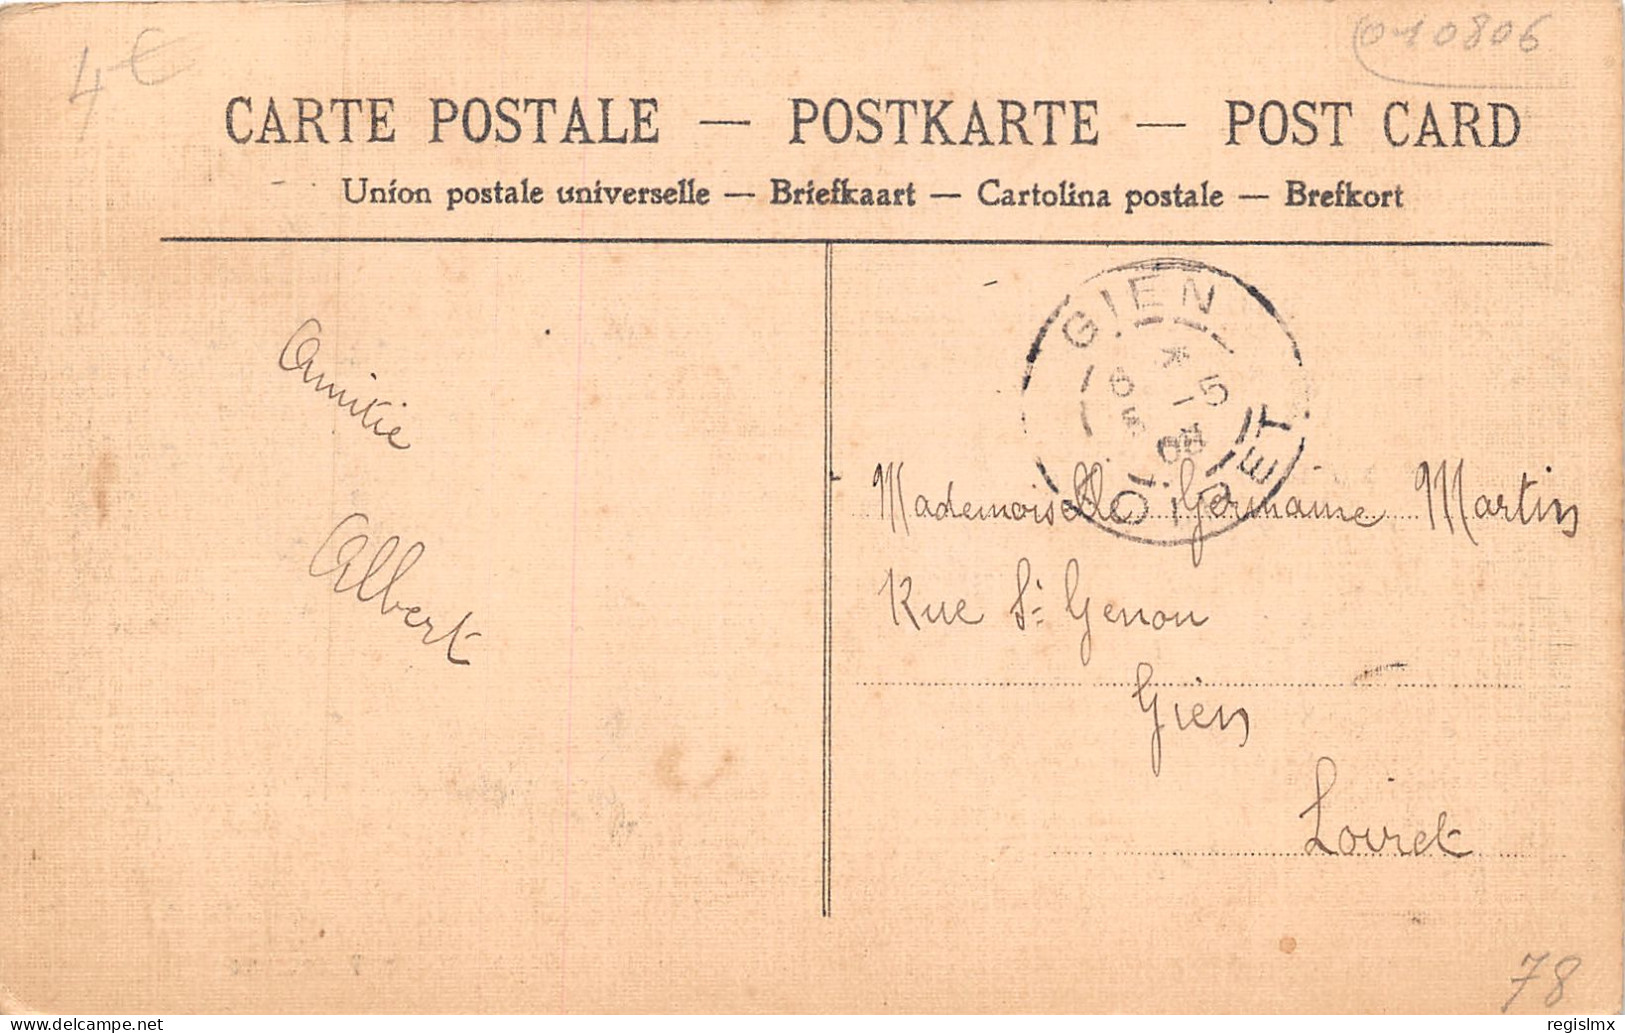 4€
010806
CARTE POSTALE — POSTKARTE — POST CARD
Union postale universelle — Briefkaart — Cartolina postale — Brefkort
GIEN
LOIRET
Amitié
Albert
Mademoiselle Germaine Martin
Rue St Genou
Gien
Loiret
78
regislmx